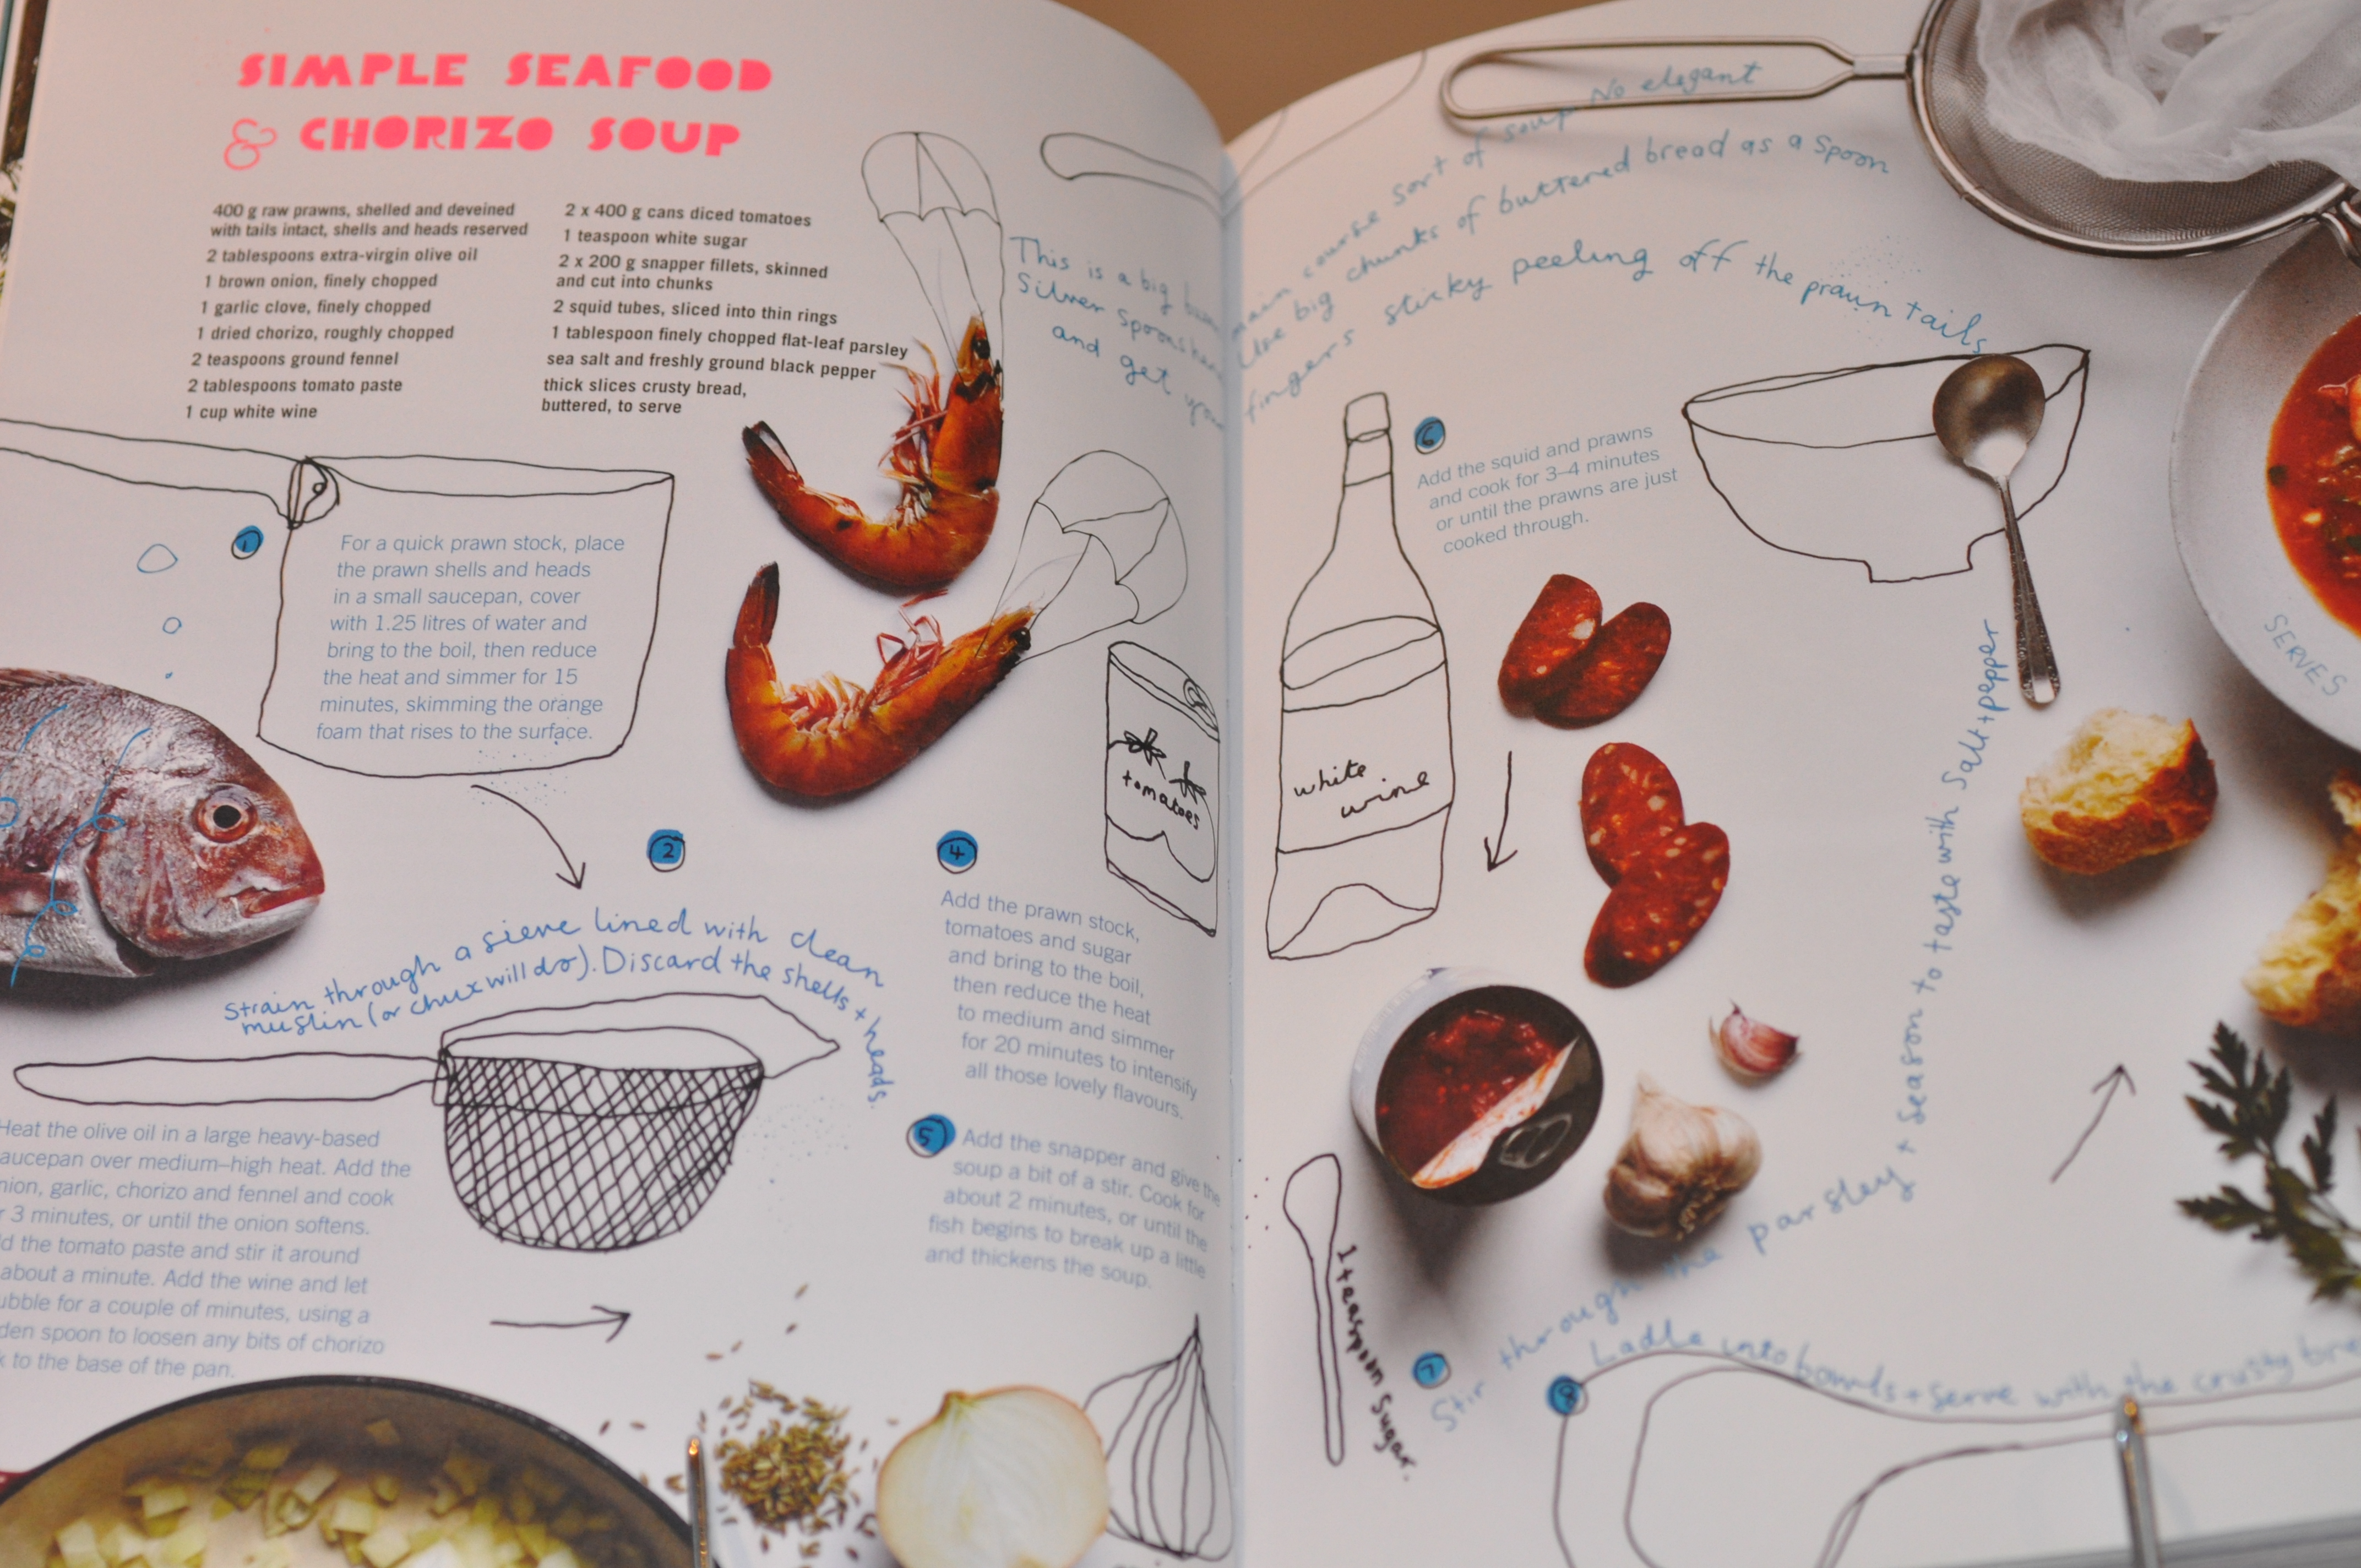 SIMPLE SEAFOOD
& CHORIZO SOUP
400 g raw prawns, shelled and deveined
with tails intact, shells and heads reserved
2 tablespoons extra-virgin olive oil
1 brown onion, finely chopped
1 garlic clove, finely chopped
1 dried chorizo, roughly chopped
2 teaspoons ground fennel
2 tablespoons tomato paste
1 cup white wine
2 x 400 g cans diced tomatoes
1 teaspoon white sugar
2 x 200 g snapper fillets, skinned
and cut into chunks
2 squid tubes, sliced into thin rings
1 tablespoon finely chopped flat-leaf parsley
sea salt and freshly ground black pepper
thick slices crusty bread,
buttered, to serve
This is a big main course sort of soup No elegant
Silver Spoons Use big chunks of buttered bread as a spoon
and get fingers sticky peeling off the prawn tails
1
For a quick prawn stock, place
the prawn shells and heads
in a small saucepan, cover
with 1.25 litres of water and
bring to the boil, then reduce
the heat and simmer for 15
minutes, skimming the orange
foam that rises to the surface.
2
Strain through a sieve lined with clean
muslin (or chux will do). Discard the shells + heads.
Heat the olive oil in a large heavy-based
aucepan over medium–high heat. Add the
nion, garlic, chorizo and fennel and cook
r 3 minutes, or until the onion softens.
d the tomato paste and stir it around
about a minute. Add the wine and let
ubble for a couple of minutes, using a
den spoon to loosen any bits of chorizo
k to the base of the pan.
4
Add the prawn stock,
tomatoes and sugar
and bring to the boil,
then reduce the heat
to medium and simmer
for 20 minutes to intensify
all those lovely flavours.
5
Add the snapper and give the
soup a bit of a stir. Cook for
about 2 minutes, or until the
fish begins to break up a little
and thickens the soup.
tomatoes
white
wine
6
Add the squid and prawns
and cook for 3–4 minutes
or until the prawns are just
cooked through.
1 teaspoon sugar.
7
Stir through the parsley + season to taste with salt + pepper
8
Ladle into bowls + serve with the crusty
SERVES